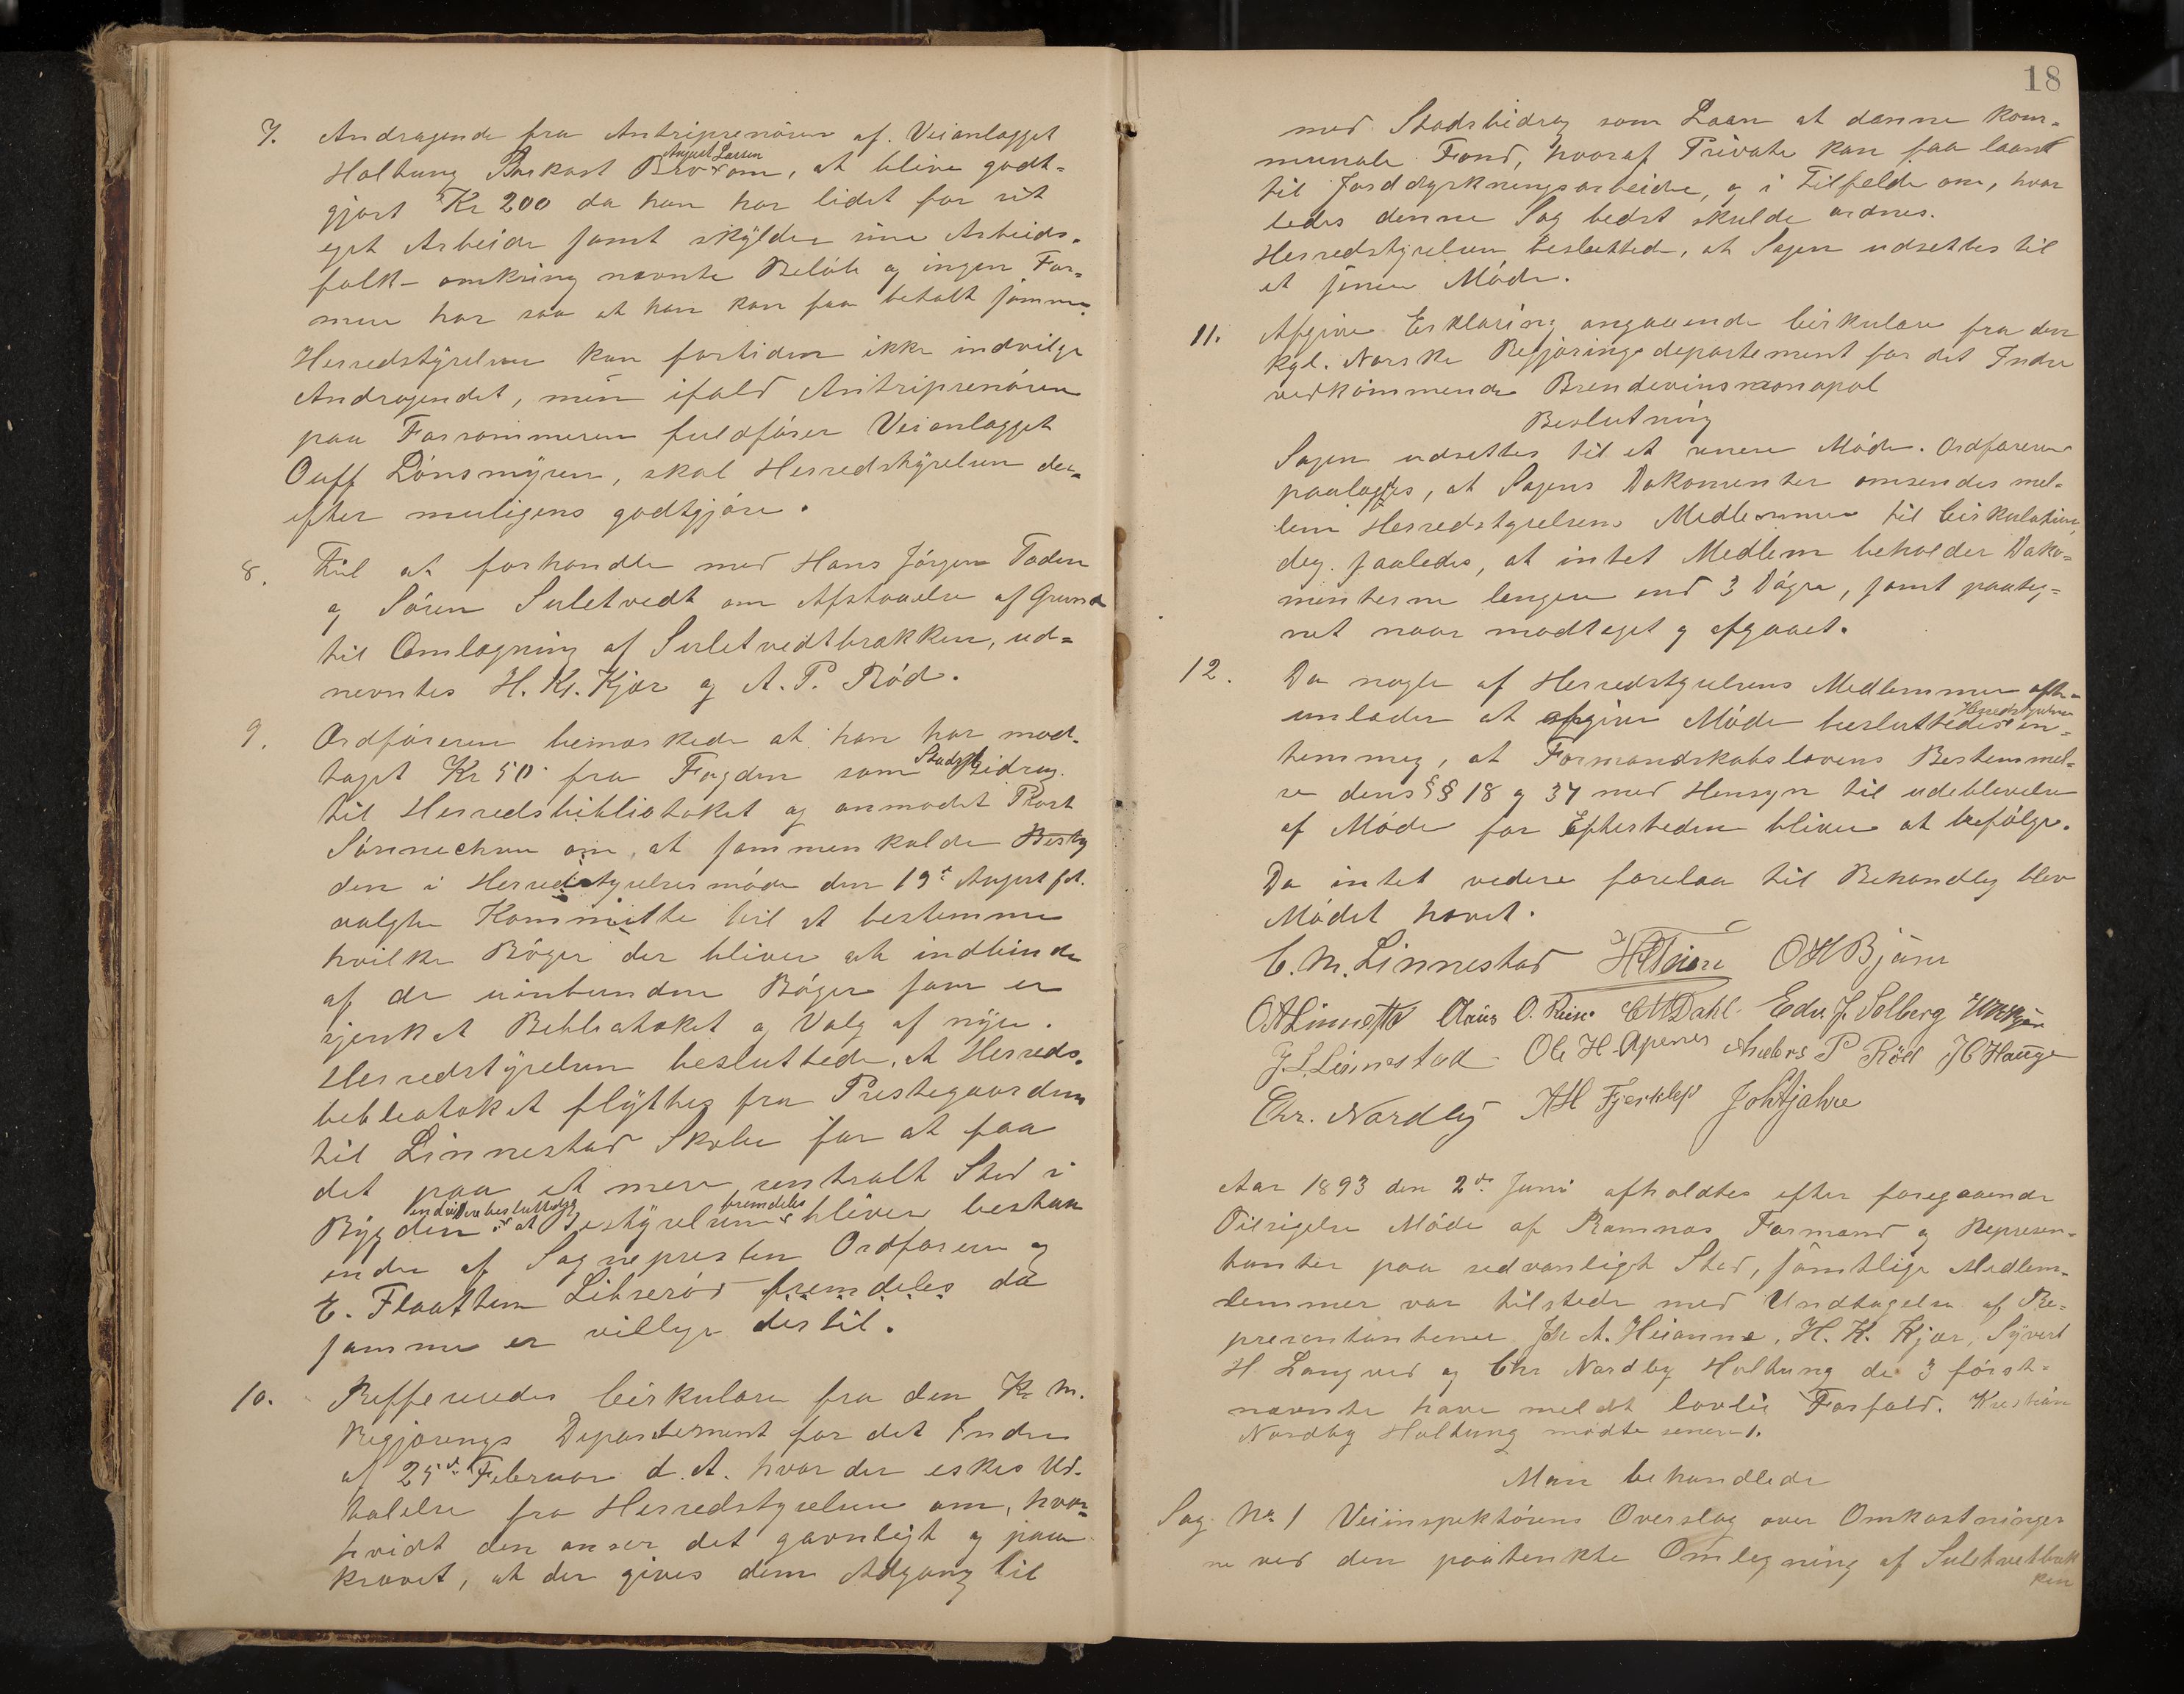 7. Andragende fra Antriprenören af. Veianlægget
Holtung Barkost Bro August Larsen om, at blive godt-
gjort Kr 200 da han har lidt for sit
eget Arbeide samt skÿlder sine Arbeids-
folk omkring nævnte Belöb og ingen For-
mue har saa at han kan faa betalt samme.
Herredstÿrelsen kan fortiden ikke indvilge
Andragendet, men ifald Antriprenören
paa Forsommeren fuldförer Veianlægget
Ouff Lönsmÿren, skal Herredstÿrelsen der-
efter muligens godtgjöre.
8. Til at forhandle med Hans Jörgen Toden
og Sören Suletvedt om Afstaaelse af Grund
til Omlægning af Suletvedtbrækken, ud-
nevntes H. Kr. Kjær og A. P. Röd.
9. Ordföreren bemærkede at han har mod-
taget Kr 50 fra Fogden som Stads Bidrag
til Herredsbibliotæket og anmodet Prost
Sönnechsen om, at sammenkalde Besty
den i Herredstyrelsesmöde den 19de August f.A.
valgte Kommitte til at bestemme
hvilke Böger der bliver at indbinde
af de uinbundne Böger som er
sjenket Bebliotæket og Valg af nÿe.
Herredstÿrelsen besluttede, at Herreds-
bebliotæket flÿttes fra Prestegaarden
til Linnestad Skole for at faa
det paa et mere sentralt Sted i
Bÿgden endvidere besluttedes at Bestÿrelsen fremdeles bliver bestaa-
ende af Sognepresten Ordföreren og
E. Flaatten Libreröd fremdeles da
samme er villige dertil.
10. Refferedes Cirkulære fra den Kr N.
Regjærings Departement for det Indre
af 25de Februar d. A. hvor der eskes Ud-
talelse fra Herredstyrelsen om, hvor-
hvidt den anser det gavnligt og paa
krævet, at der gives dem Adgang til
18
med Stadsbidrag som Laan at danne kom-
munale Fond, hvoraf Private kan faa laant
til Jorddyrkningsarbeide, og i Tilfelde om, hvor
ledes denne Sag bedst skulde ordnes.
Herredstyrelsen besluttede, at Sagen udsettes til
et senere Möde.
11. Afgive Erklæring angaaende Cirkulære fra den
Kgl. Norske Regjæringsdepartement for det Indre
vedkommende Brendevinsmonopol
Beslutning
Sagen udsettes til et senere Möde. Ordföreren
paalagdes, at Sagens Dokomenter omsendes mel-
lem Herredstyrelsens Medlemmer til Cirkulation,
dog saaledes, at intet Medlem beholder Doko-
menterne lengere end 3 Dögn, samt paateg-
net naar modtaget og afgaaet.
12. Da nogle af Herredstyrelsens Medlemmer ofte
unlader at afgive Möde besluttedes Herredstyrelsen en-
stemmig, at Formandskabslovens Bestemmel-
se dens §§ 18 og 37 med Hensyn til udeblivelse
af Möde for Eftertiden bliver at befölge.
Da intet videre forelaa til Behandlg blev
Mödet hævet.
C. M. Linnestad OH Björe
Claus O. Rein. C M Dahl. Edv. J. Solberg H K Kjær
J. L. Linnestad Ole H. Apenes Anders P Röd J C Hauge
Chr. Nordby A H Fjerkleiv Joh Hjahre
Aar 1893 den 2de Juni afholdtes efter foregaaende
Tilsigelse Möde af Ramnæs Formand og Represen-
tanter paa sedvanligt Sted, samtlige Medlem-
lemmer var tilstede med Undtagelse af Re-
presentanterne Joh A. Heianne, H. K. Kjær, Sÿvert
H Langved og Chr Nordby Holtung de 3 först-
nævnte have meldt lovlig Forfald. Kristian
Nordby Holtung mödte senere.
Man behandlede
Sag No 1 Veiinspektörens Overslag over Omkostninger
ne ved den paatenkte Omlegning af Suletvetbræk
ken